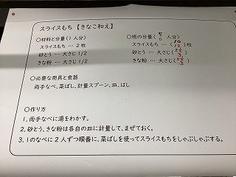 スライスもち【きなこ和え】
○材料と分量（1人分）
スライスもち … 2枚
砂とう … 大さじ1/2
きな粉 … 大さじ1/2
○班の分量（ 人分）
スライスもち …（ ）枚
砂とう … 大さじ（ ）
きな粉 … 大さじ（ ）
○必要な用具と食器
両手なべ、菜ばし、計量スプーン、皿、はし
○作り方
1．両手なべに湯をわかす。
2．砂とう、きな粉は各自の皿に計量して、まぜておく。
3．1のなべに2人ずつ順番に、菜ばしを使ってスライスもちをしゃぶしゃぶする。